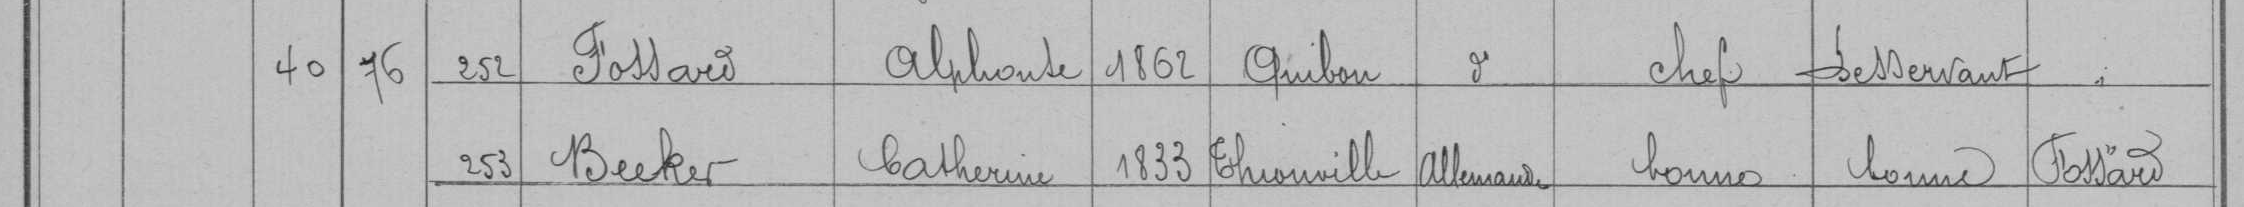 40 76 252 Fossard Alphonse 1862 Quibou d° chef desservant
253 Becker Catherine 1833 Thionville Allemande bonne bonne Fossard